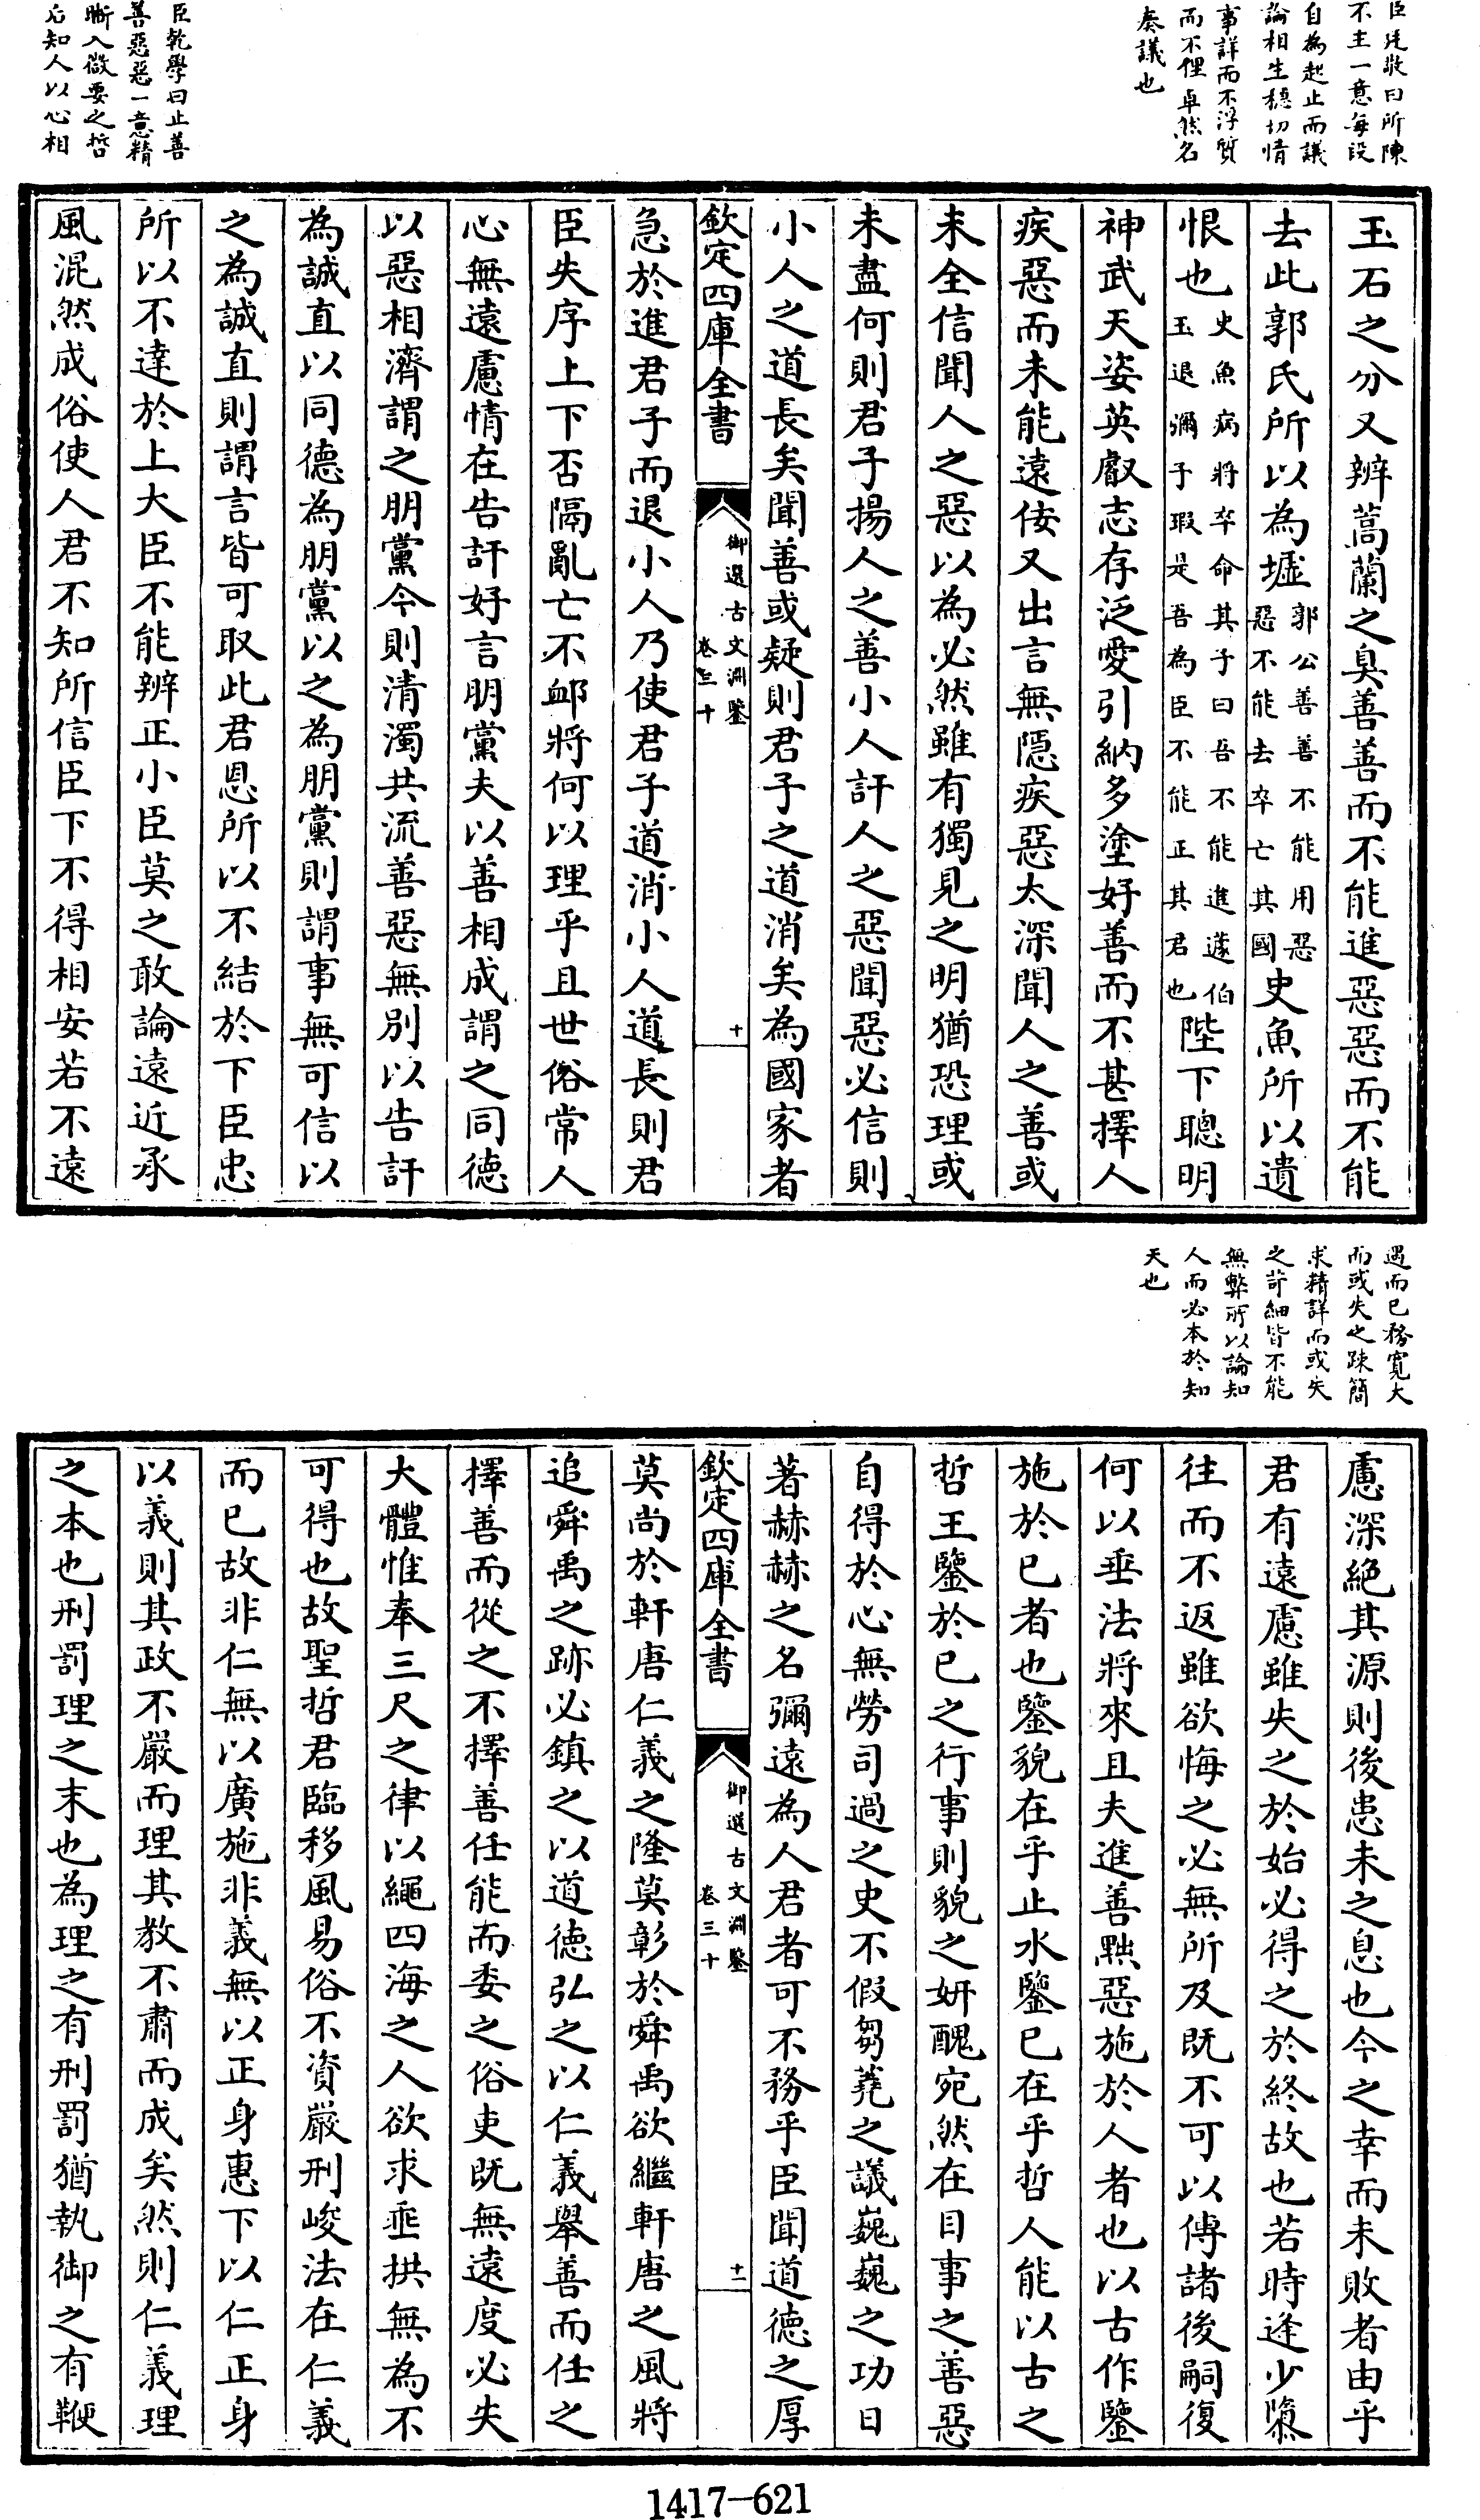 臣廷敬曰所陳
不主一意每段
自為起止而議
論相生穩切情
事詳而不浮質
而不俚卓然名
奏議也
臣乾學曰止善
善惡惡一意精
晰入微要之哲
后知人以心相
玉石之分又辨蒿蘭之臭善善而不能進惡惡而不能
去此郭氏所以為墟郭公善善不能用惡
惡不能去卒亡其國史魚所以遺
恨也史魚病將卒命其子曰吾不能進蘧伯
玉退彌子瑕是吾為臣不能正其君也陛下聰明
神武天姿英叡志存泛愛引納多塗好善而不甚擇人
疾惡而未能遠佞又出言無隱疾惡太深聞人之善或
未全信聞人之惡以為必然雖有獨見之明猶恐理或
未盡何則君子揚人之善小人訐人之惡聞惡必信則
小人之道長矣聞善或疑則君子之道消矣為國家者
欽定四庫全書
御選古文淵鑒
卷三十
十
急於進君子而退小人乃使君子道消小人道長則君
臣失序上下否隔亂亡不卹將何以理乎且世俗常人
心無遠慮情在告訐好言朋黨夫以善相成謂之同德
以惡相濟謂之朋黨今則清濁共流善惡無別以告訐
為誠直以同德為朋黨以之為朋黨則謂事無可信以
之為誠直則謂言皆可取此君恩所以不結於下臣忠
所以不達於上大臣不能辨正小臣莫之敢論遠近承
風混然成俗使人君不知所信臣下不得相安若不遠
遇而已務寬大
而或失之踈簡
求精詳而或失
之苛細皆不能
無弊所以論知
人而必本於知
天也
慮深絕其源則後患未之息也今之幸而未敗者由乎
君有遠慮雖失之於始必得之於終故也若時逢少隳
往而不返雖欲悔之必無所及既不可以傳諸後嗣復
何以垂法將來且夫進善黜惡施於人者也以古作鑒
施於已者也鑒貌在乎止水鑒已在乎哲人能以古之
哲王鑒於已之行事則貌之妍醜宛然在目事之善惡
自得於心無勞司過之史不假芻蕘之議巍巍之功日
著赫赫之名彌遠為人君者可不務乎臣聞道德之厚
欽定四庫全書
御選古文淵鑒
卷三十
十一
莫尚於軒唐仁義之隆莫彰於舜禹欲繼軒唐之風將
追舜禹之跡必鎮之以道德弘之以仁義舉善而任之
擇善而從之不擇善任能而委之俗吏既無遠度必失
大體惟奉三尺之律以繩四海之人欲求垂拱無為不
可得也故聖哲君臨移風易俗不資嚴刑峻法在仁義
而已故非仁無以廣施非義無以正身惠下以仁正身
以義則其政不嚴而理其教不肅而成矣然則仁義理
之本也刑罰理之末也為理之有刑罰猶執御之有鞭
1417—621